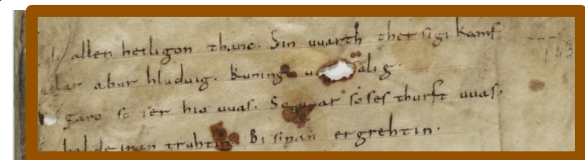 allen heiligon thanc. Sin uuarth ther sigi kamf
uuar abur hluduig. Kuning u alig.
garo so ser hio uuas. So uuar so ses thurft uuas.
halde inan truhtin Bi sinan ergrehtin.